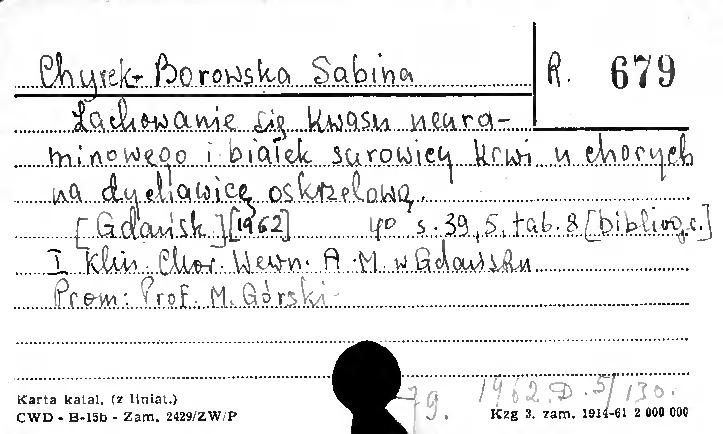 Chyrek-Borowska Sabina R. 679
Zachowanie się kwasu neura-
minowego i białek surowicy krwi u chorych
na dychawicę oskrzelową.
[Gdańsk] [1962] 4° s. 39, 5, tab. 8 [bibliogr.]
I Klin. Chor. Wewn. A. M. w Gdańsku
Prom: Prof. M. Górski
79. 1962.D.5/130.
Karta katal. (z liniat.)
CWD - B-15b - Zam. 2429/ZW/P
Kzg 3. zam. 1914-61 2 000 000